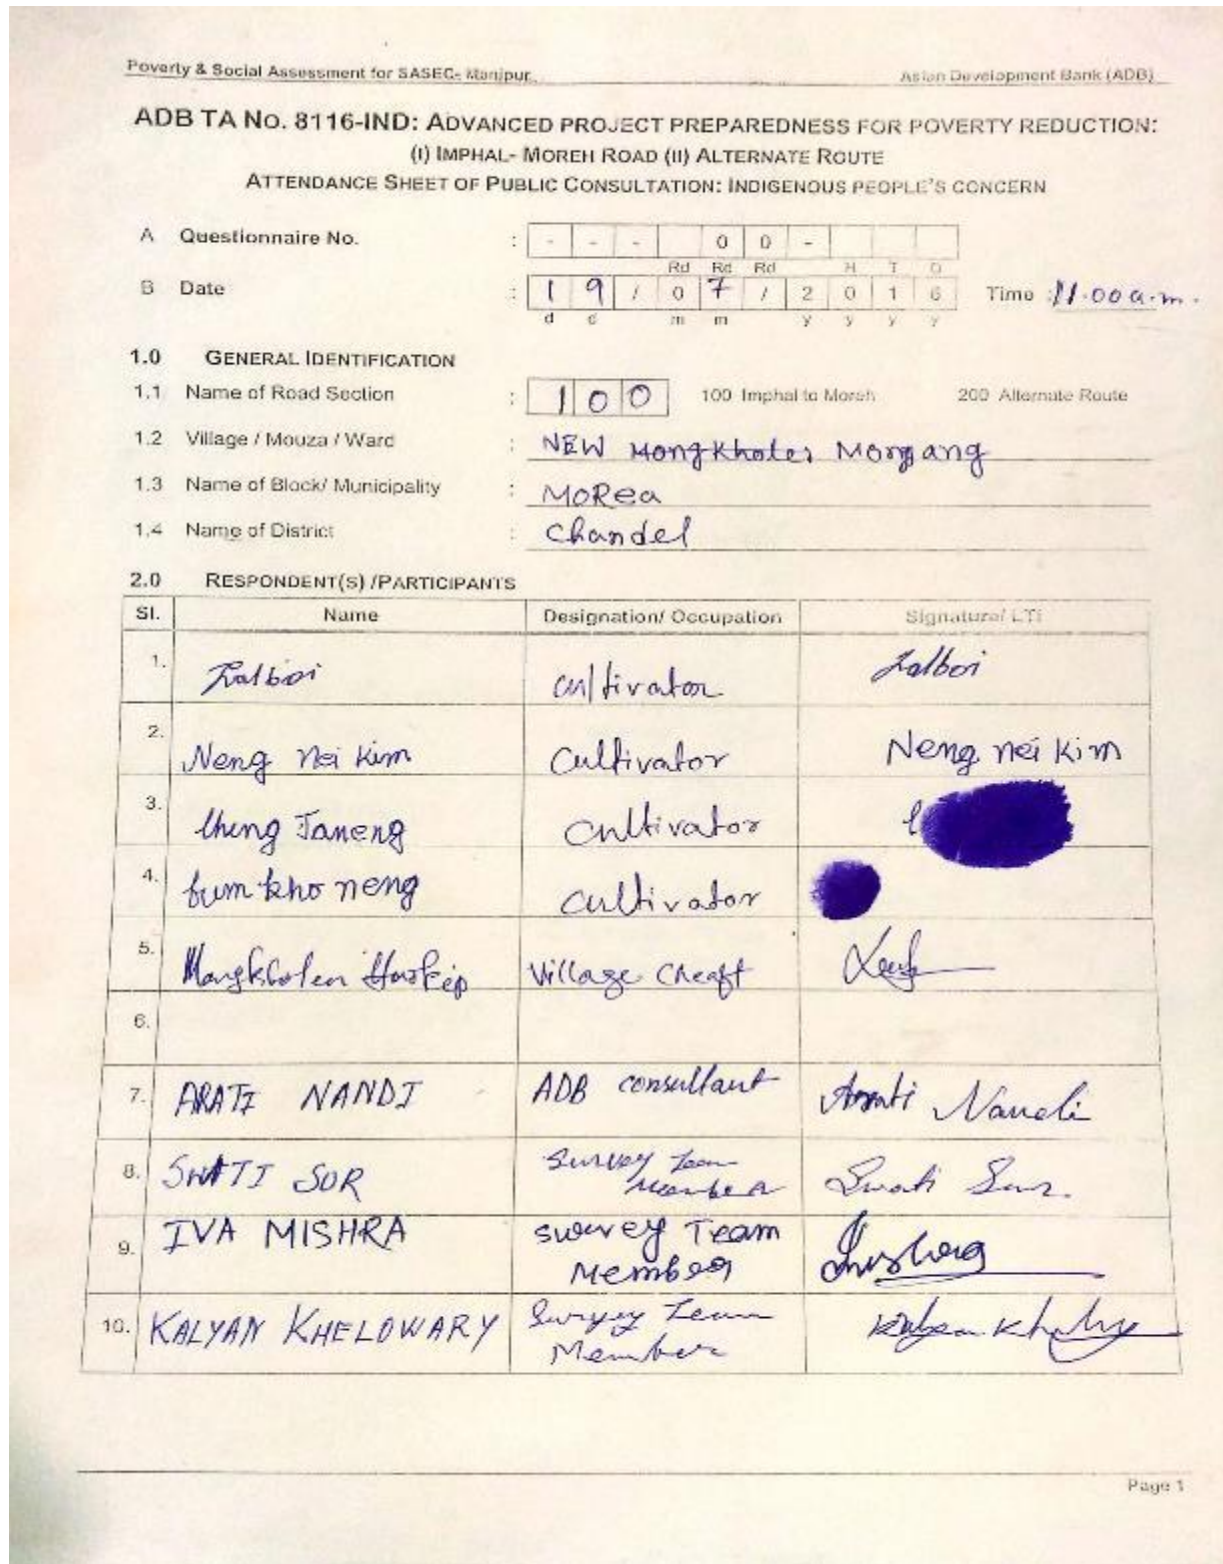 Poverty & Social Assessment for SASEC- Manipur
Asian Development Bank (ADB)
ADB TA No. 8116-IND: ADVANCED PROJECT PREPAREDNESS FOR POVERTY REDUCTION:
(I) IMPHAL- MOREH ROAD (II) ALTERNATE ROUTE
ATTENDANCE SHEET OF PUBLIC CONSULTATION: INDIGENOUS PEOPLE'S CONCERN
A Questionnaire No. : - - - 0 0 -
Rd Rd Rd H T O
B Date : 1 9 / 0 7 / 2 0 1 6 Time : 11.00 a.m.
d d m m y y y y
1.0 GENERAL IDENTIFICATION
1.1 Name of Road Section : 1 0 0 100 Imphal to Moreh 200 Alternate Route
1.2 Village / Mouza / Ward : NEW Morgang
1.3 Name of Block/ Municipality : MoRea
1.4 Name of District : Chandel
2.0 RESPONDENT(S) /PARTICIPANTS
Sl. Name Designation/ Occupation Signature/ LTI
1. Lalboi cultivator Lalboi
2. Neng nei kim Cultivator Neng nei kim
3. Janeng cultivator
4. kho neng cultivator
5. Mangkholen Haokip Village Cheaft
6.
7. ARATI NANDI ADB consultant Arati Nandi
8. SWATI SUR Survey Team Member Swati Sur
9. IVA MISHRA survey Team Member
10. KALYAN KHELOWARY Survey Team Member
Page 1